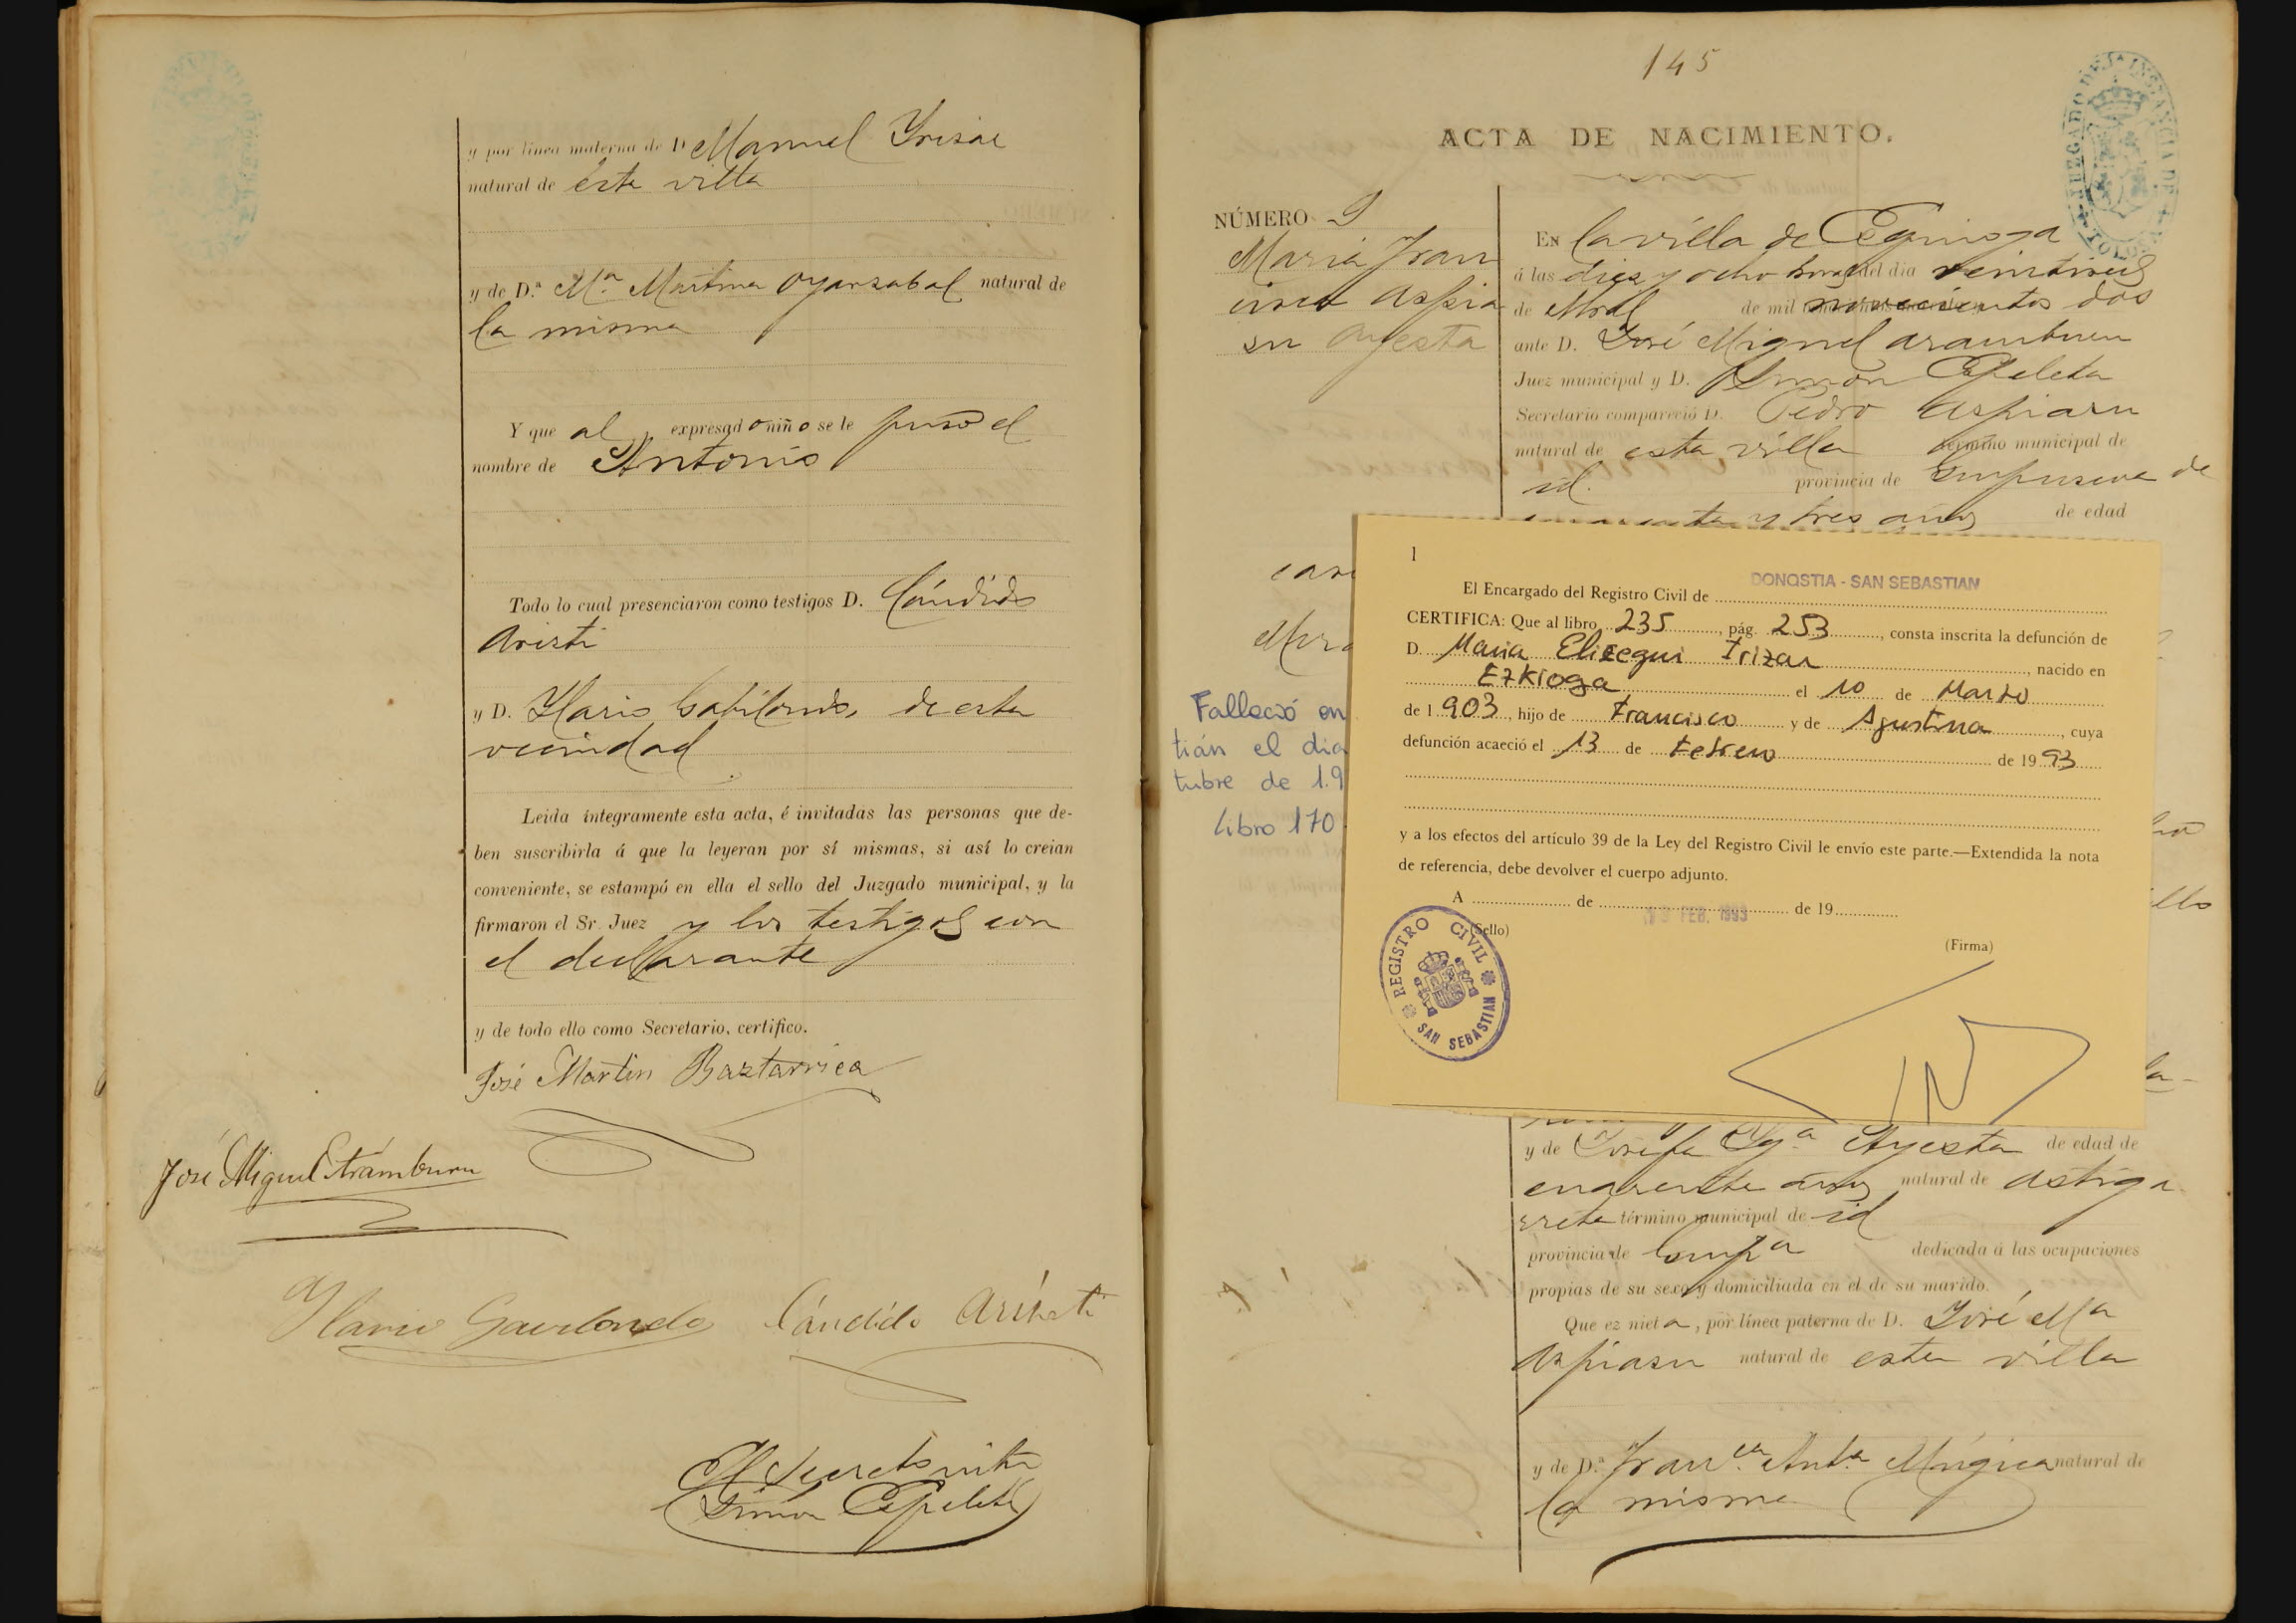 y por línea materna de D Manuel Yrisar
natural de esta villa
y de D.ª Mª Martina Oyarzabal natural de
la misma
Y que al expresado niño se le puso el
nombre de Antonio
Todo lo cual presenciaron como testigos D. Cándido
Aristi
y D. Ylario Gabilondo, de esta
vecindad
Leida íntegramente esta acta, é invitadas las personas que de-
ben suscribirla á que la leyeran por sí mismas, si así lo creian
conveniente, se estampó en ella el sello del Juzgado municipal, y la
firmaron el Sr. Juez y los testigos con
el declarante
y de todo ello como Secretario, certifico.
José Martin Baztarrica
José Miguel Aramburu
Ylario Gavilondo Cándido Aristi
El Secretario
Simón Espeleta
145
ACTA DE NACIMIENTO.
JUZGADO DE 1ª INSTANCIA DE TOLOSA
NÚMERO 9
Maria Fran
cisca Aspia
su Ayesta
EN la villa de Ezquioga
á las diez y ocho horas del dia veintiseis
de Abril de mil novecientos dos
ante D. José Miguel Aramburu
Juez municipal y D. Simón Espeleta
Secretario compareció D. Pedro Aspiasu
natural de esta villa término municipal de
id. provincia de Guipuscoa de
cuarenta y tres años de edad
casa
Falleció en
tián el dia
tubre de 1.9
Libro 170
1
El Encargado del Registro Civil de DONOSTIA - SAN SEBASTIAN
CERTIFICA: Que al libro 235, pág. 253, consta inscrita la defunción de
D. Maria Elizegui Irizar, nacido en
Ezkioga el 10 de Marzo
de 1 903, hijo de Francisco y de Agustina, cuya
defunción acaeció el 13 de Febrero de 19 93
y a los efectos del artículo 39 de la Ley del Registro Civil le envío este parte.—Extendida la nota
de referencia, debe devolver el cuerpo adjunto.
A de FEB. 1993 de 19
(Sello)
(Firma)
REGISTRO CIVIL SAN SEBASTIAN
y de Josefa Igª Ayesta de edad de
cuarenta años natural de Astiga
rreta término municipal de id
provincia de Guipª dedicada á las ocupaciones
propias de su sexo y domiciliada en el de su marido.
Que ez nieta, por línea paterna de D. José Mª
Aspiasu natural de esta villa
y de D.ª Franca. Anta Múgica natural de
la misma